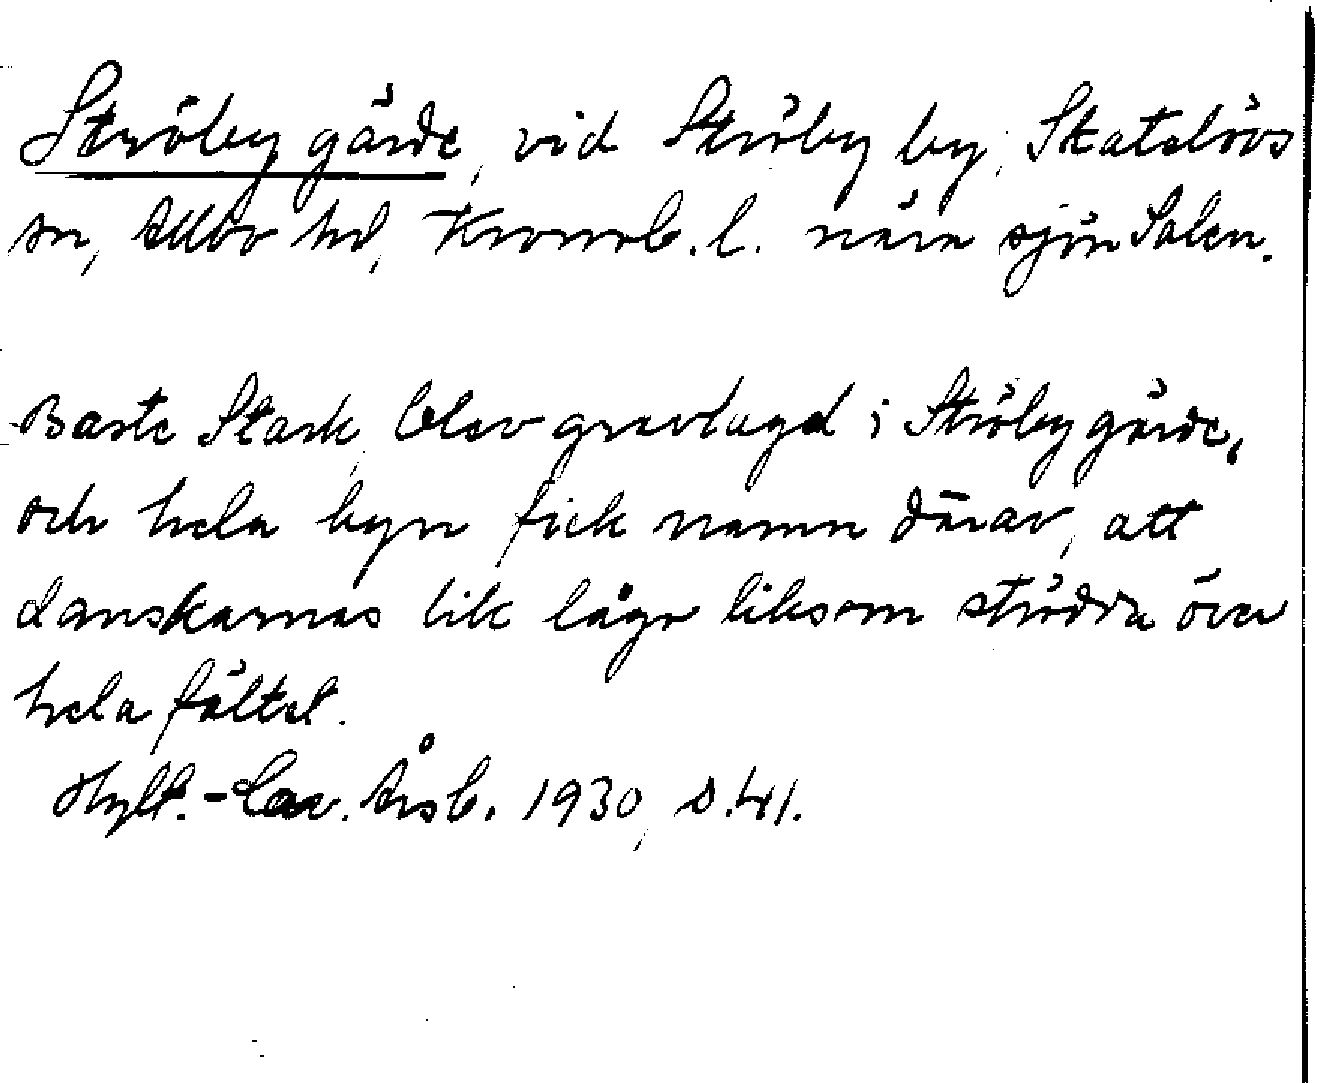 Ströby gärde, vid Ströby by, Skatelövs
sn, Allbo hd, Kronob. l. nära sjön Salen.
Baste Stark blev gravlagd i Ströby gärde,
och hela byn fick namn därav, att
danskarnas lik lågo liksom strödda över
hela fältet.
Hylt.-Cav. Årsb. 1930, s. 41.